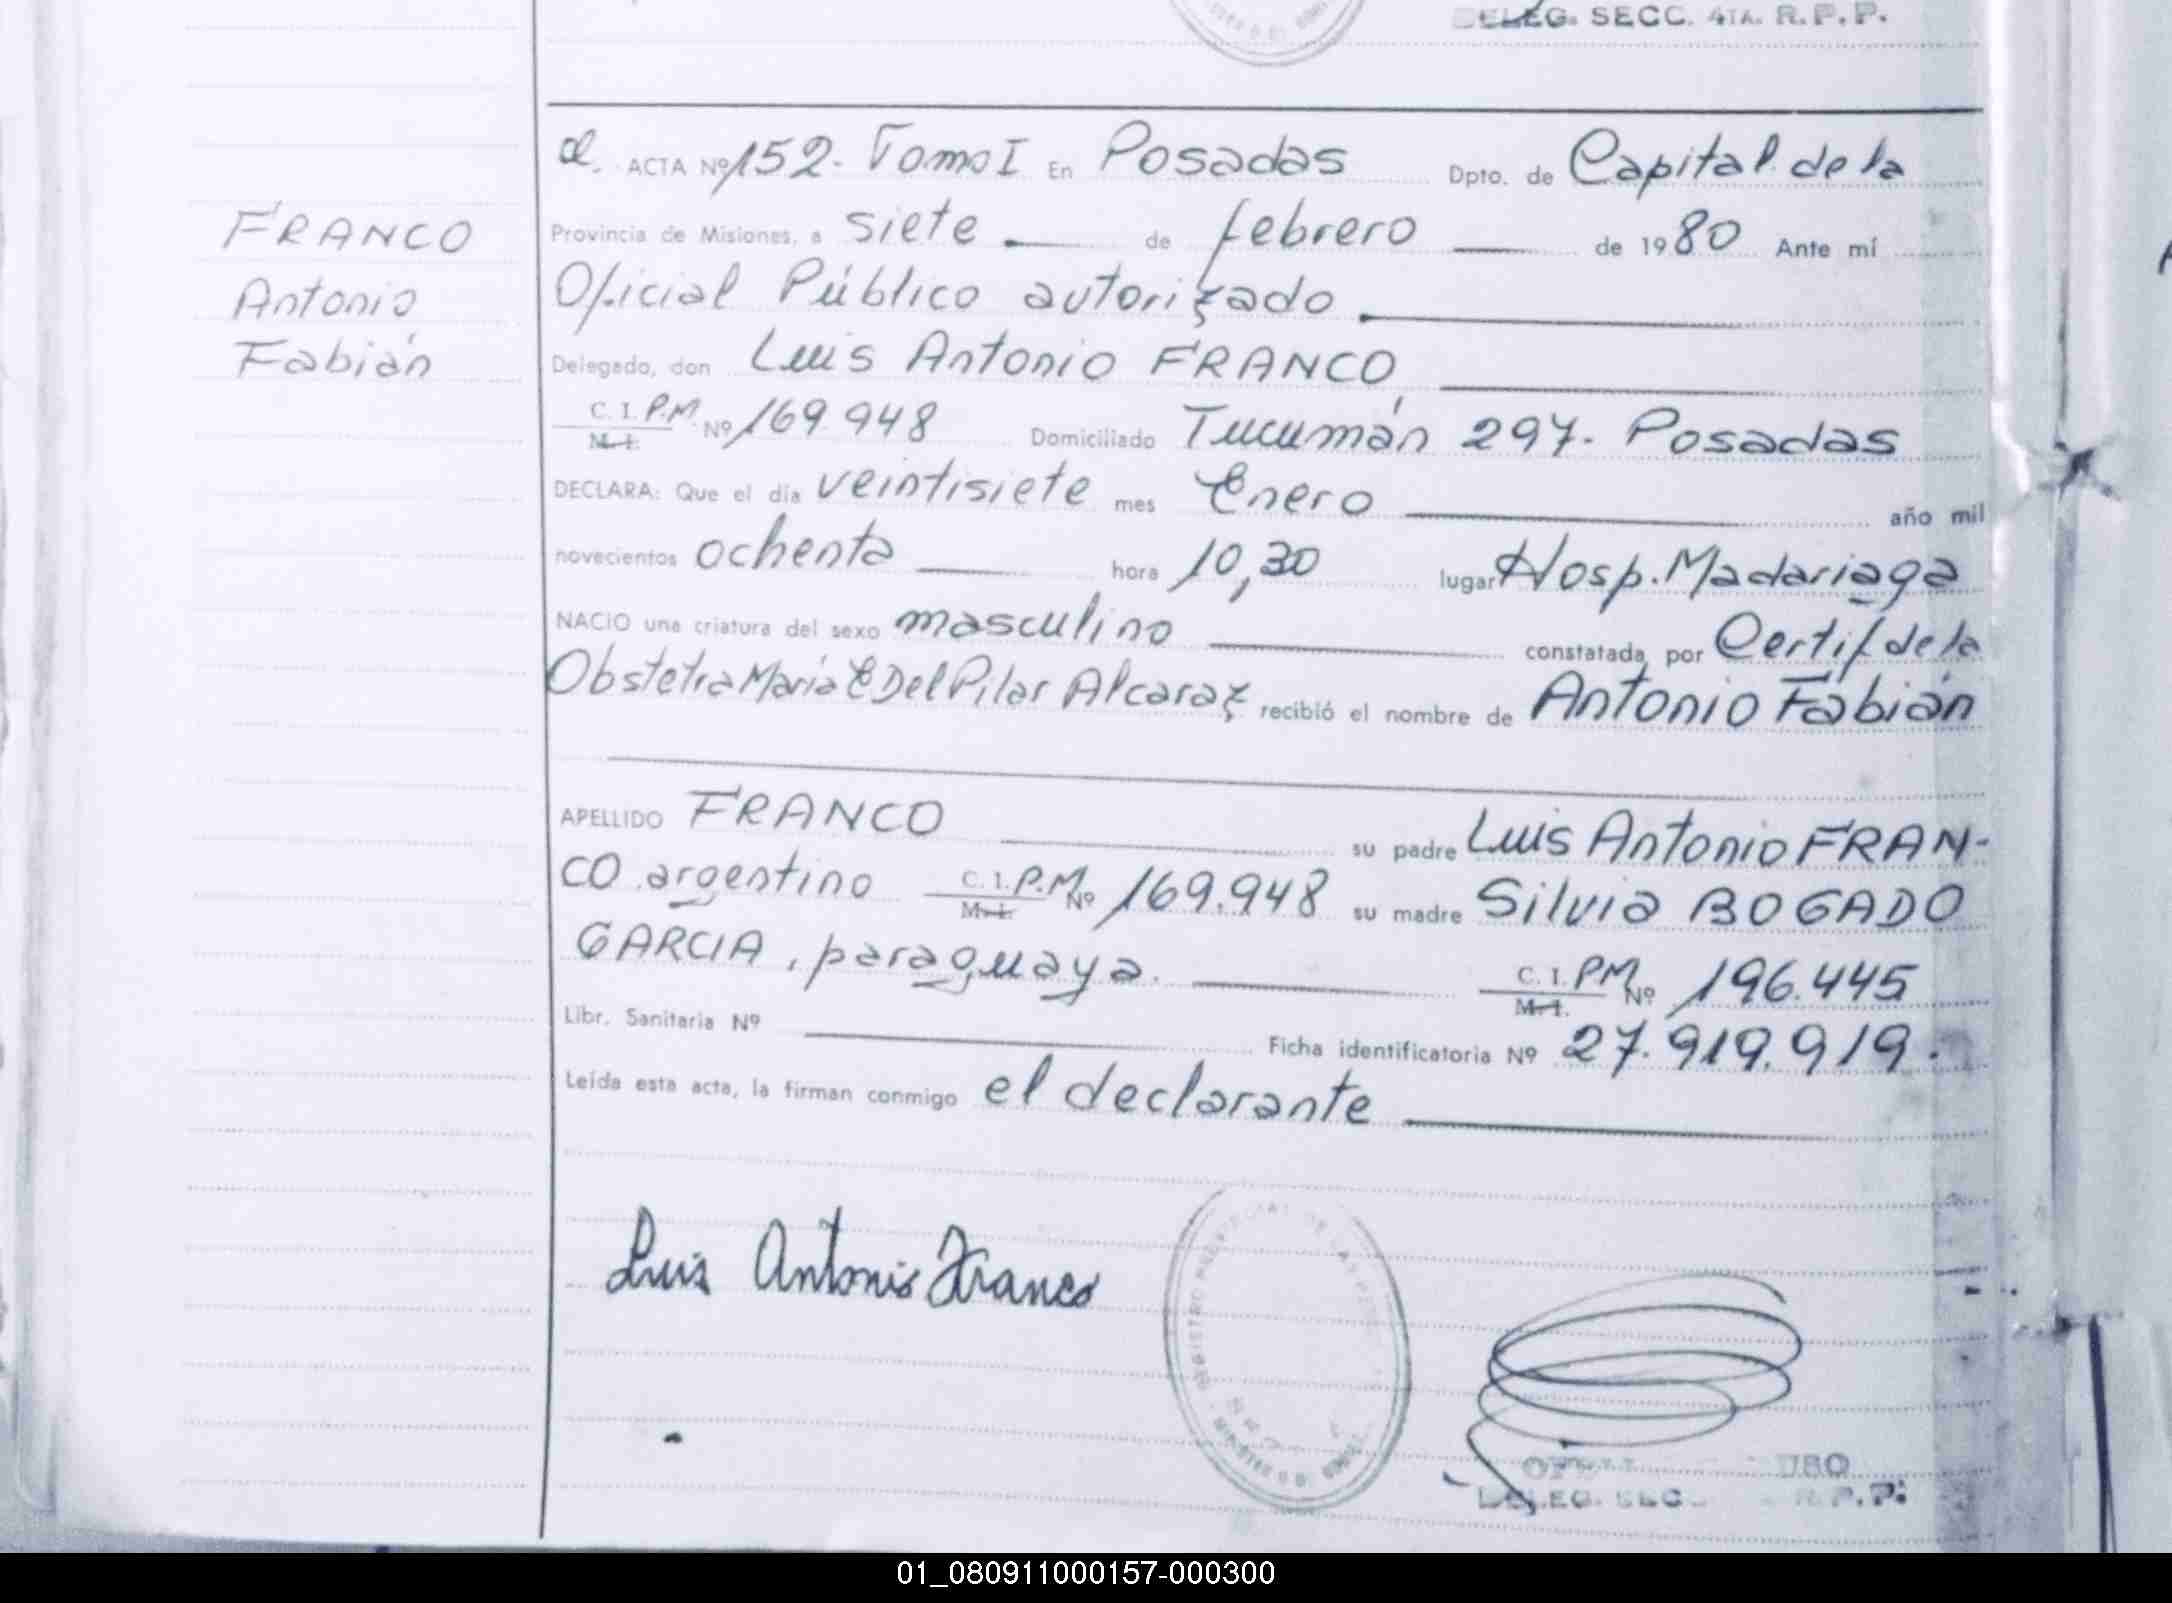 DELEG. SECC. 4TA. R.P.P.
ACTA Nº 152. Tomo I En Posadas Dpto. de Capital de la
Provincia de Misiones, a siete de febrero de 1980 Ante mí
Oficial Público autorizado
Delegado, don Luis Antonio FRANCO
C. I. P.M. Nº 169.948 Domiciliado Tucumán 297. Posadas
M. I.
DECLARA: Que el día veintisiete mes Enero año mil
novecientos ochenta hora 10,30 lugar Hosp. Madariaga
NACIO una criatura del sexo masculino constatada por Certif de la
Obstetra María E Del Pilar Alcaraz recibió el nombre de Antonio Fabián
APELLIDO FRANCO su padre Luis Antonio FRAN-
CO argentino C. I. P.M. Nº 169.948 su madre Silvia BOGADO
M. I.
GARCIA, paraguaya. C. I. PM Nº 196.445
M. I.
Libr. Sanitaria Nº Ficha identificatoria Nº 27.919.919.
Leída esta acta, la firman conmigo el declarante
Luis Antonio Franco
R.P.P.
FRANCO
Antonio
Fabián
01_080911000157-000300